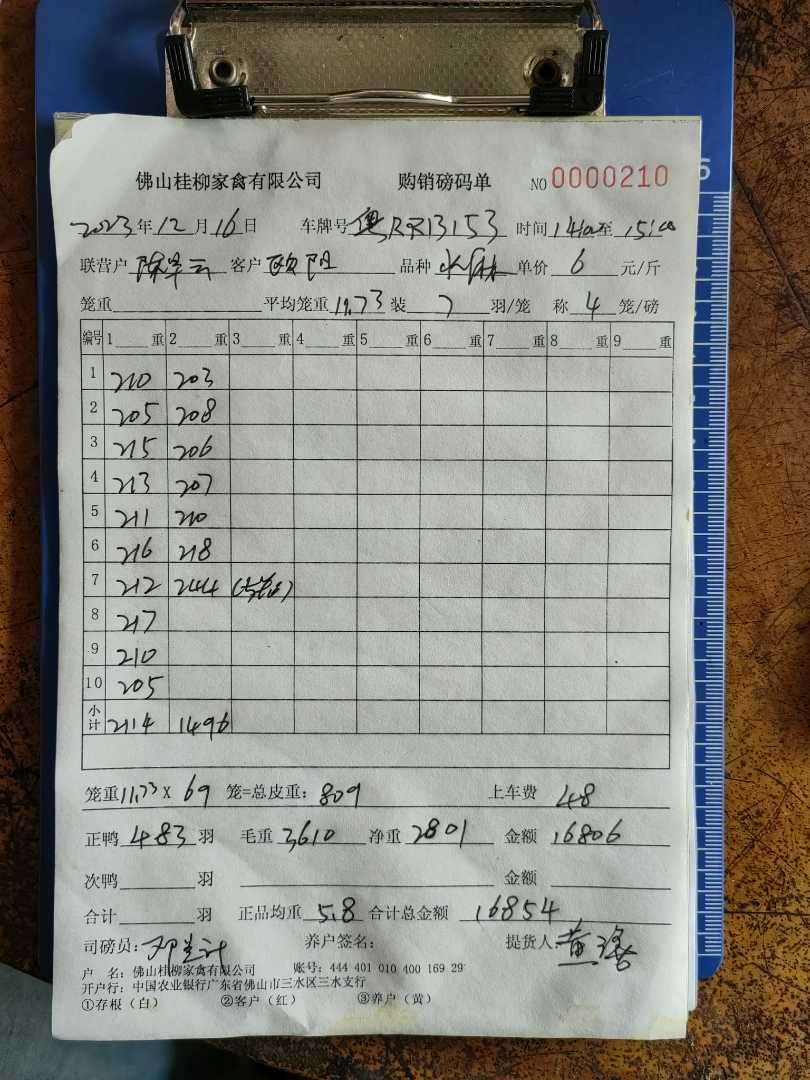 佛山桂柳家禽有限公司 购销磅码单 NO 0000210
2023年12月16日 车牌号 粤RR13153 时间 至 15:00
联营户 客户 欧阳 品种 单价 6 元/斤
笼重 平均笼重 11.73 装 7 羽/笼 称 4 笼/磅
编号 1 重 2 重 3 重 4 重 5 重 6 重 7 重 8 重 9 重
1 210 203
2 205 208
3 215 206
4 213 207
5 211 210
6 216 218
7 212 244
8 217
9 210
10 205
小计 2114 1496
笼重 11.73 X 69 笼=总皮重: 809 上车费 48
正鸭 483 羽 毛重 3610 净重 2801 金额 16806
次鸭 羽 金额
合计 羽 正品均重 5.8 合计总金额 16854
司磅员: 养户签名: 提货人: 黄
户 名: 佛山桂柳家禽有限公司 账号: 444 401 010 400 169 29
开户行: 中国农业银行广东省佛山市三水区三水支行
①存根(白) ②客户(红) ③养户(黄)